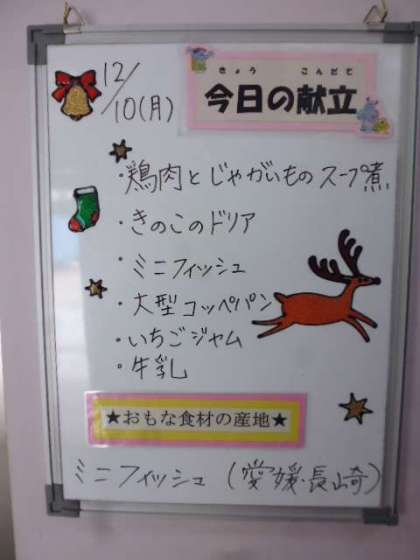 12/10(月)
きょう こんだて
今日の献立
・鶏肉とじゃがいものスープ煮
・きのこのドリア
・ミニフィッシュ
・大型コッペパン
・いちごジャム
・牛乳
★おもな食材の産地★
ミニフィッシュ (愛媛・長崎)